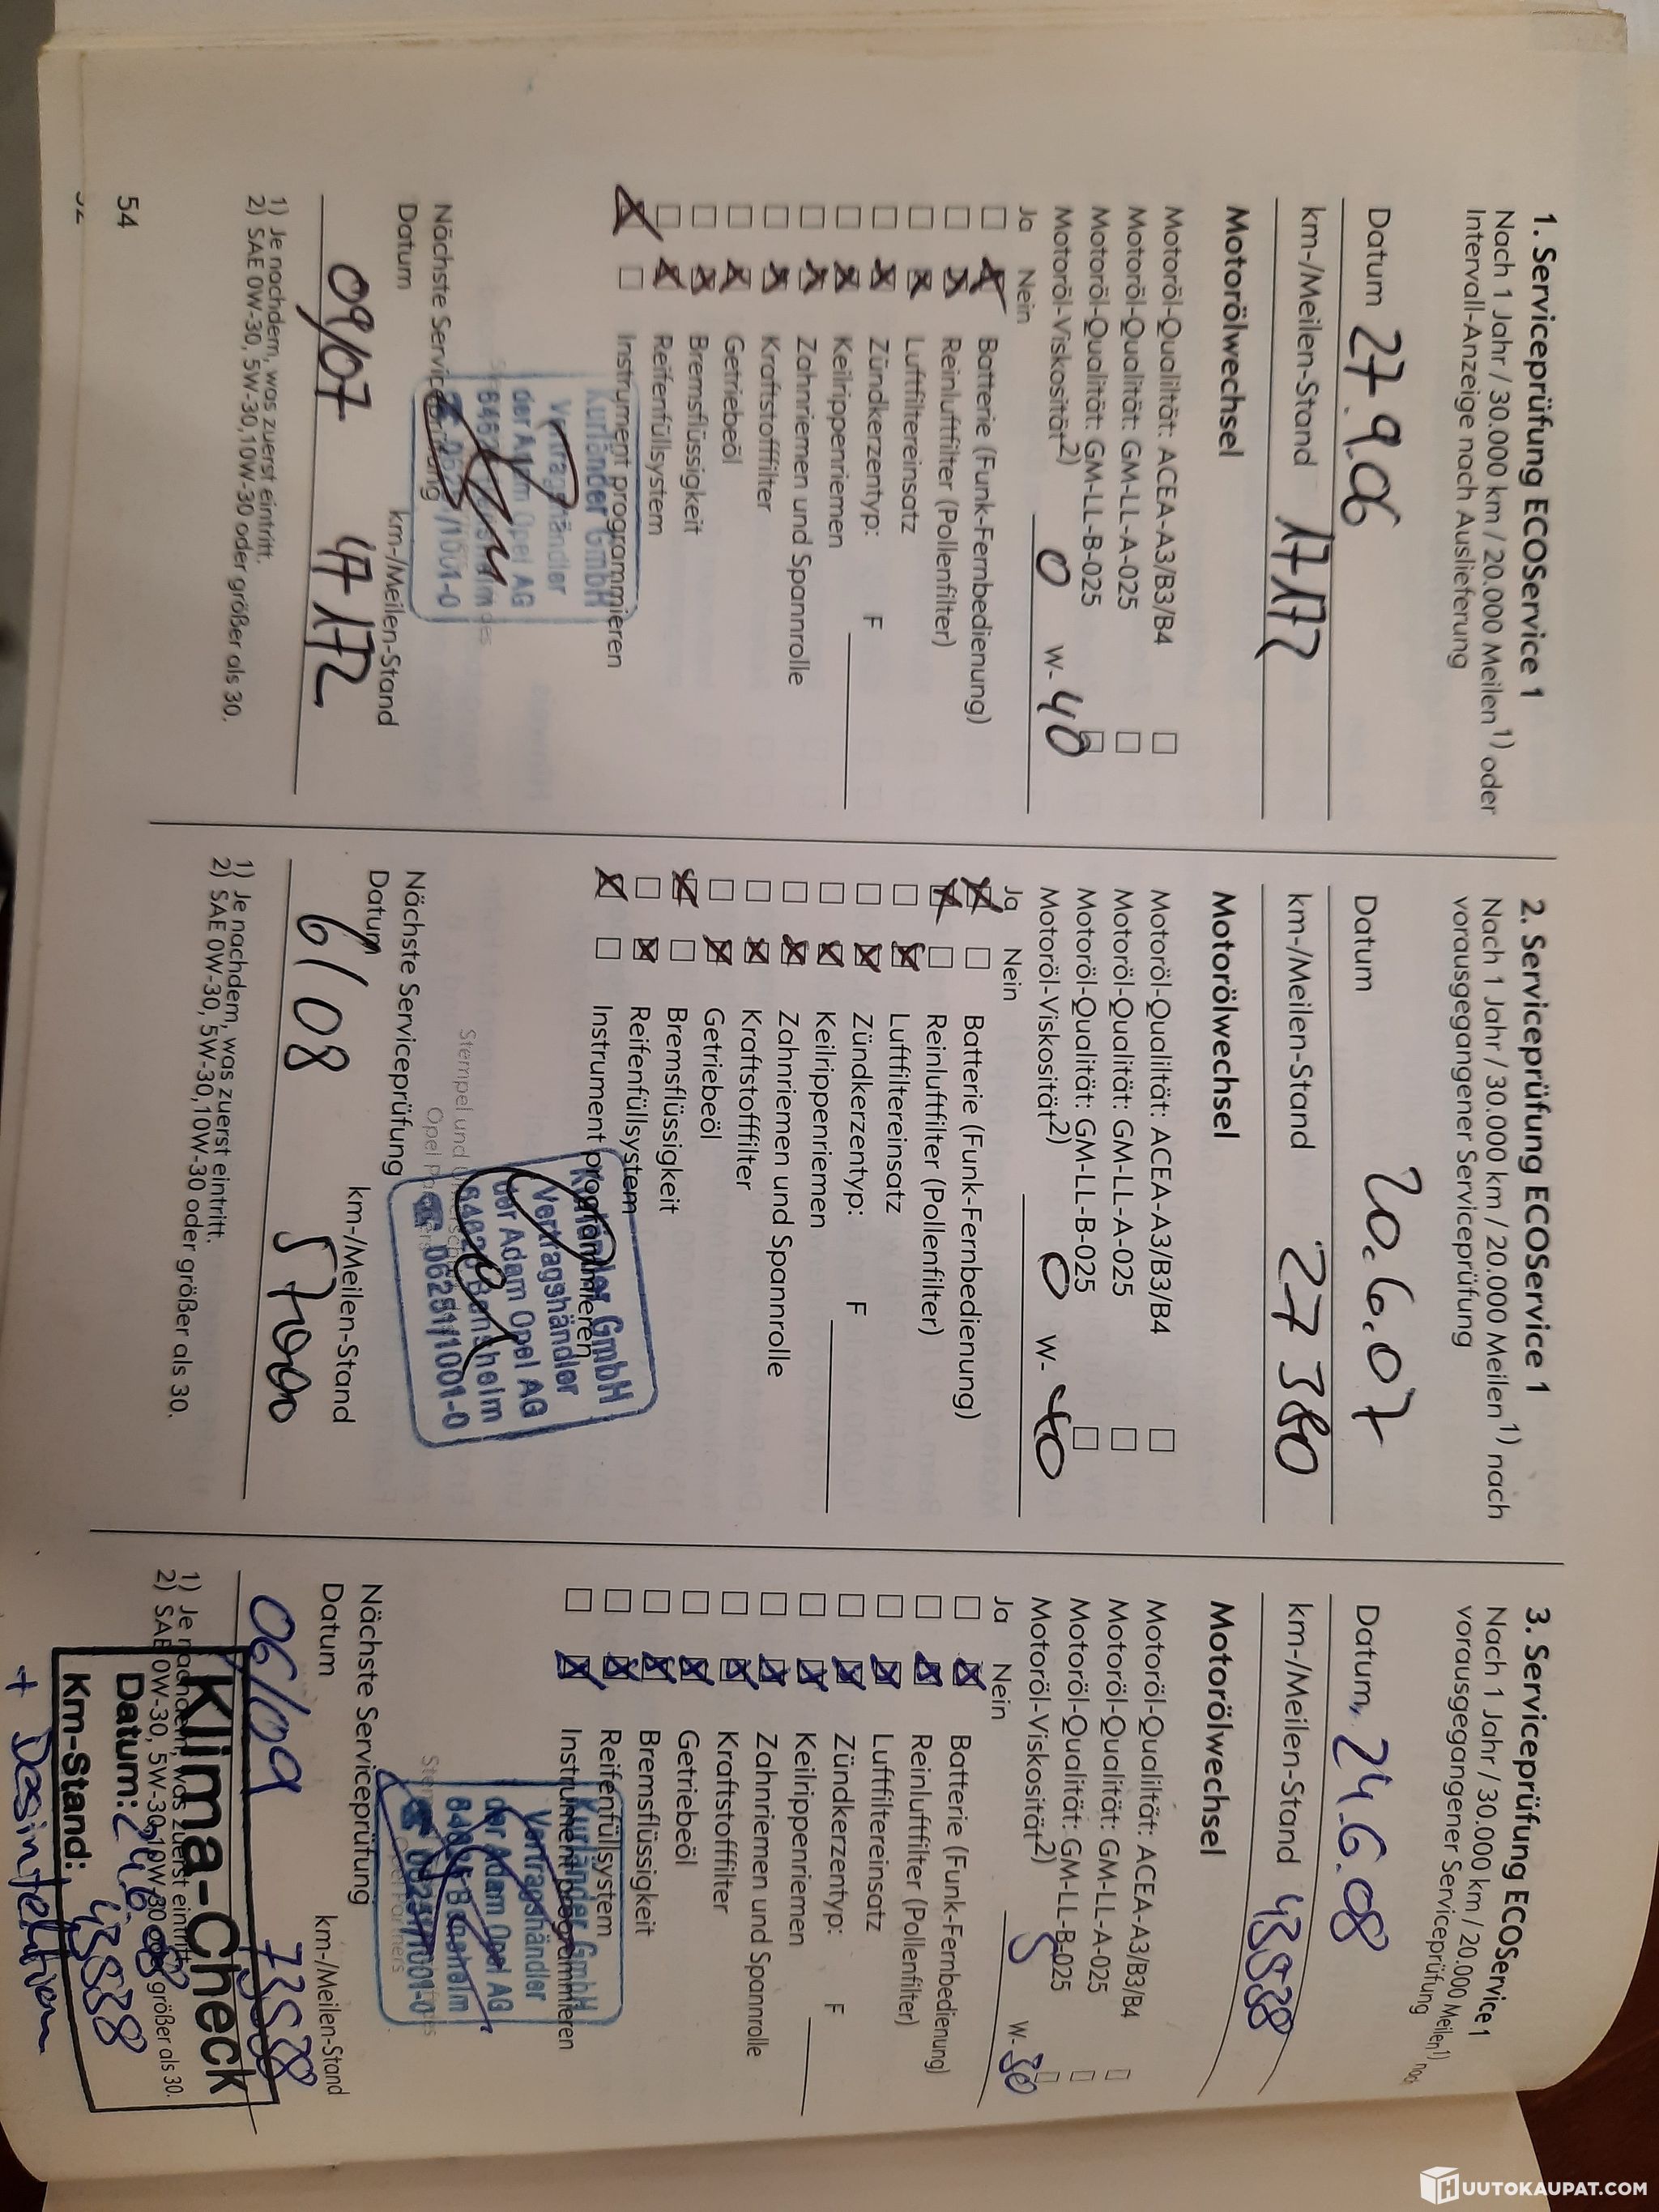 1. Serviceprüfung ECOService 1
Nach 1 Jahr / 30.000 km / 20.000 Meilen1) oder
Intervall-Anzeige nach Auslieferung
Datum 27.9.06
km-/Meilen-Stand 17 172
Motorölwechsel
Motoröl-Qualiltät: ACEA-A3/B3/B4
Motoröl-Qualität: GM-LL-A-025
Motoröl-Qualität: GM-LL-B-025
Motoröl-Viskosität2) 0 W- 40
Ja Nein
Batterie (Funk-Fernbedienung)
Reinluftfilter (Pollenfilter)
Luftfiltereinsatz
Zündkerzentyp: F
Keilrippenriemen
Zahnriemen und Spannrolle
Kraftstofffilter
Getriebeöl
Bremsflüssigkeit
Reifenfüllsystem
Instrument programmieren
Kurländer GmbH
Vertragshändler
der Adam Opel AG
Nächste Serviceprüfung
Datum km-/Meilen-Stand
09/07 47 172
1) Je nachdem, was zuerst eintritt.
2) SAE 0W-30, 5W-30,10W-30 oder größer als 30.
54
2. Serviceprüfung ECOService 1
Nach 1 Jahr / 30.000 km / 20.000 Meilen1) nach
vorausgegangener Serviceprüfung
Datum 20.6.07
km-/Meilen-Stand 27 380
Motorölwechsel
Motoröl-Qualiltät: ACEA-A3/B3/B4
Motoröl-Qualität: GM-LL-A-025
Motoröl-Qualität: GM-LL-B-025
Motoröl-Viskosität2) 0 W- 40
Ja Nein
Batterie (Funk-Fernbedienung)
Reinluftfilter (Pollenfilter)
Luftfiltereinsatz
Zündkerzentyp: F
Keilrippenriemen
Zahnriemen und Spannrolle
Kraftstofffilter
Getriebeöl
Bremsflüssigkeit
Reifenfüllsystem
Instrument programmieren
Kurländer GmbH
Vertragshändler
der Adam Opel AG
64625 Bensheim
☎ 06251/1001-0
Stempel und
Nächste Serviceprüfung
Datum km-/Meilen-Stand
6/08 57000
1) Je nachdem, was zuerst eintritt.
2) SAE 0W-30, 5W-30,10W-30 oder größer als 30.
3. Serviceprüfung ECOService 1
Nach 1 Jahr / 30.000 km / 20.000 Meilen1) nach
vorausgegangener Serviceprüfung
Datum 24.6.08
km-/Meilen-Stand 43538
Motorölwechsel
Motoröl-Qualiltät: ACEA-A3/B3/B4
Motoröl-Qualität: GM-LL-A-025
Motoröl-Qualität: GM-LL-B-025
Motoröl-Viskosität2) 5 W- 30
Ja Nein
Batterie (Funk-Fernbedienung)
Reinluftfilter (Pollenfilter)
Luftfiltereinsatz
Zündkerzentyp: F
Keilrippenriemen
Zahnriemen und Spannrolle
Kraftstofffilter
Getriebeöl
Bremsflüssigkeit
Reifenfüllsystem
Instrument programmieren
Kurländer GmbH
Vertragshändler
der Adam Opel AG
Nächste Serviceprüfung
Datum km-/Meilen-Stand
06/09 73538
1) Je nachdem, was zuerst eintritt.
2) SAE 0W-30, 5W-30,10W-30 oder größer als 30.
Klima-Check
Datum: 24.6.08
Km-Stand: 43538
+ Desinfektion
HUUTOKAUPAT.COM